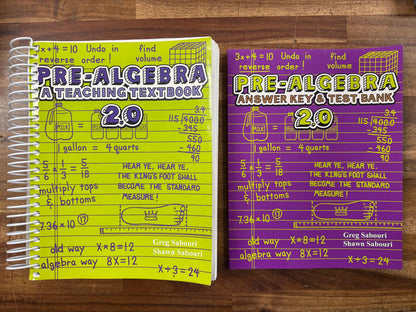 3x+4=10 Undo in find
reverse order! volume
PRE-ALGEBRA
A TEACHING TEXTBOOK
2.0
MILK
1 gallon = 4 quarts
3.4
115 400.0
-345
550
-460
90
5/6 × 1/3 = 5/18
multiply tops
& bottoms
HEAR YE, HEAR YE.
THE KING'S FOOT SHALL
BECOME THE STANDARD
MEASURE!
7.36×10 17
old way X×8=12
algebra way 8X=12
Greg Sabouri
Shawn Sabouri
X+3=24
3x+4=10 Undo in find
reverse order! volume
PRE-ALGEBRA
ANSWER KEY & TEST BANK
2.0
MILK
1 gallon = 4 quarts
3.4
115 400.0
-345
550
-460
90
5/6 × 1/3 = 5/18
multiply tops
& bottoms
HEAR YE, HEAR YE.
THE KING'S FOOT SHALL
BECOME THE STANDARD
MEASURE!
7.36×10 17
old way X×8=12
algebra way 8X=12
Greg Sabouri
Shawn Sabouri
X+3=24